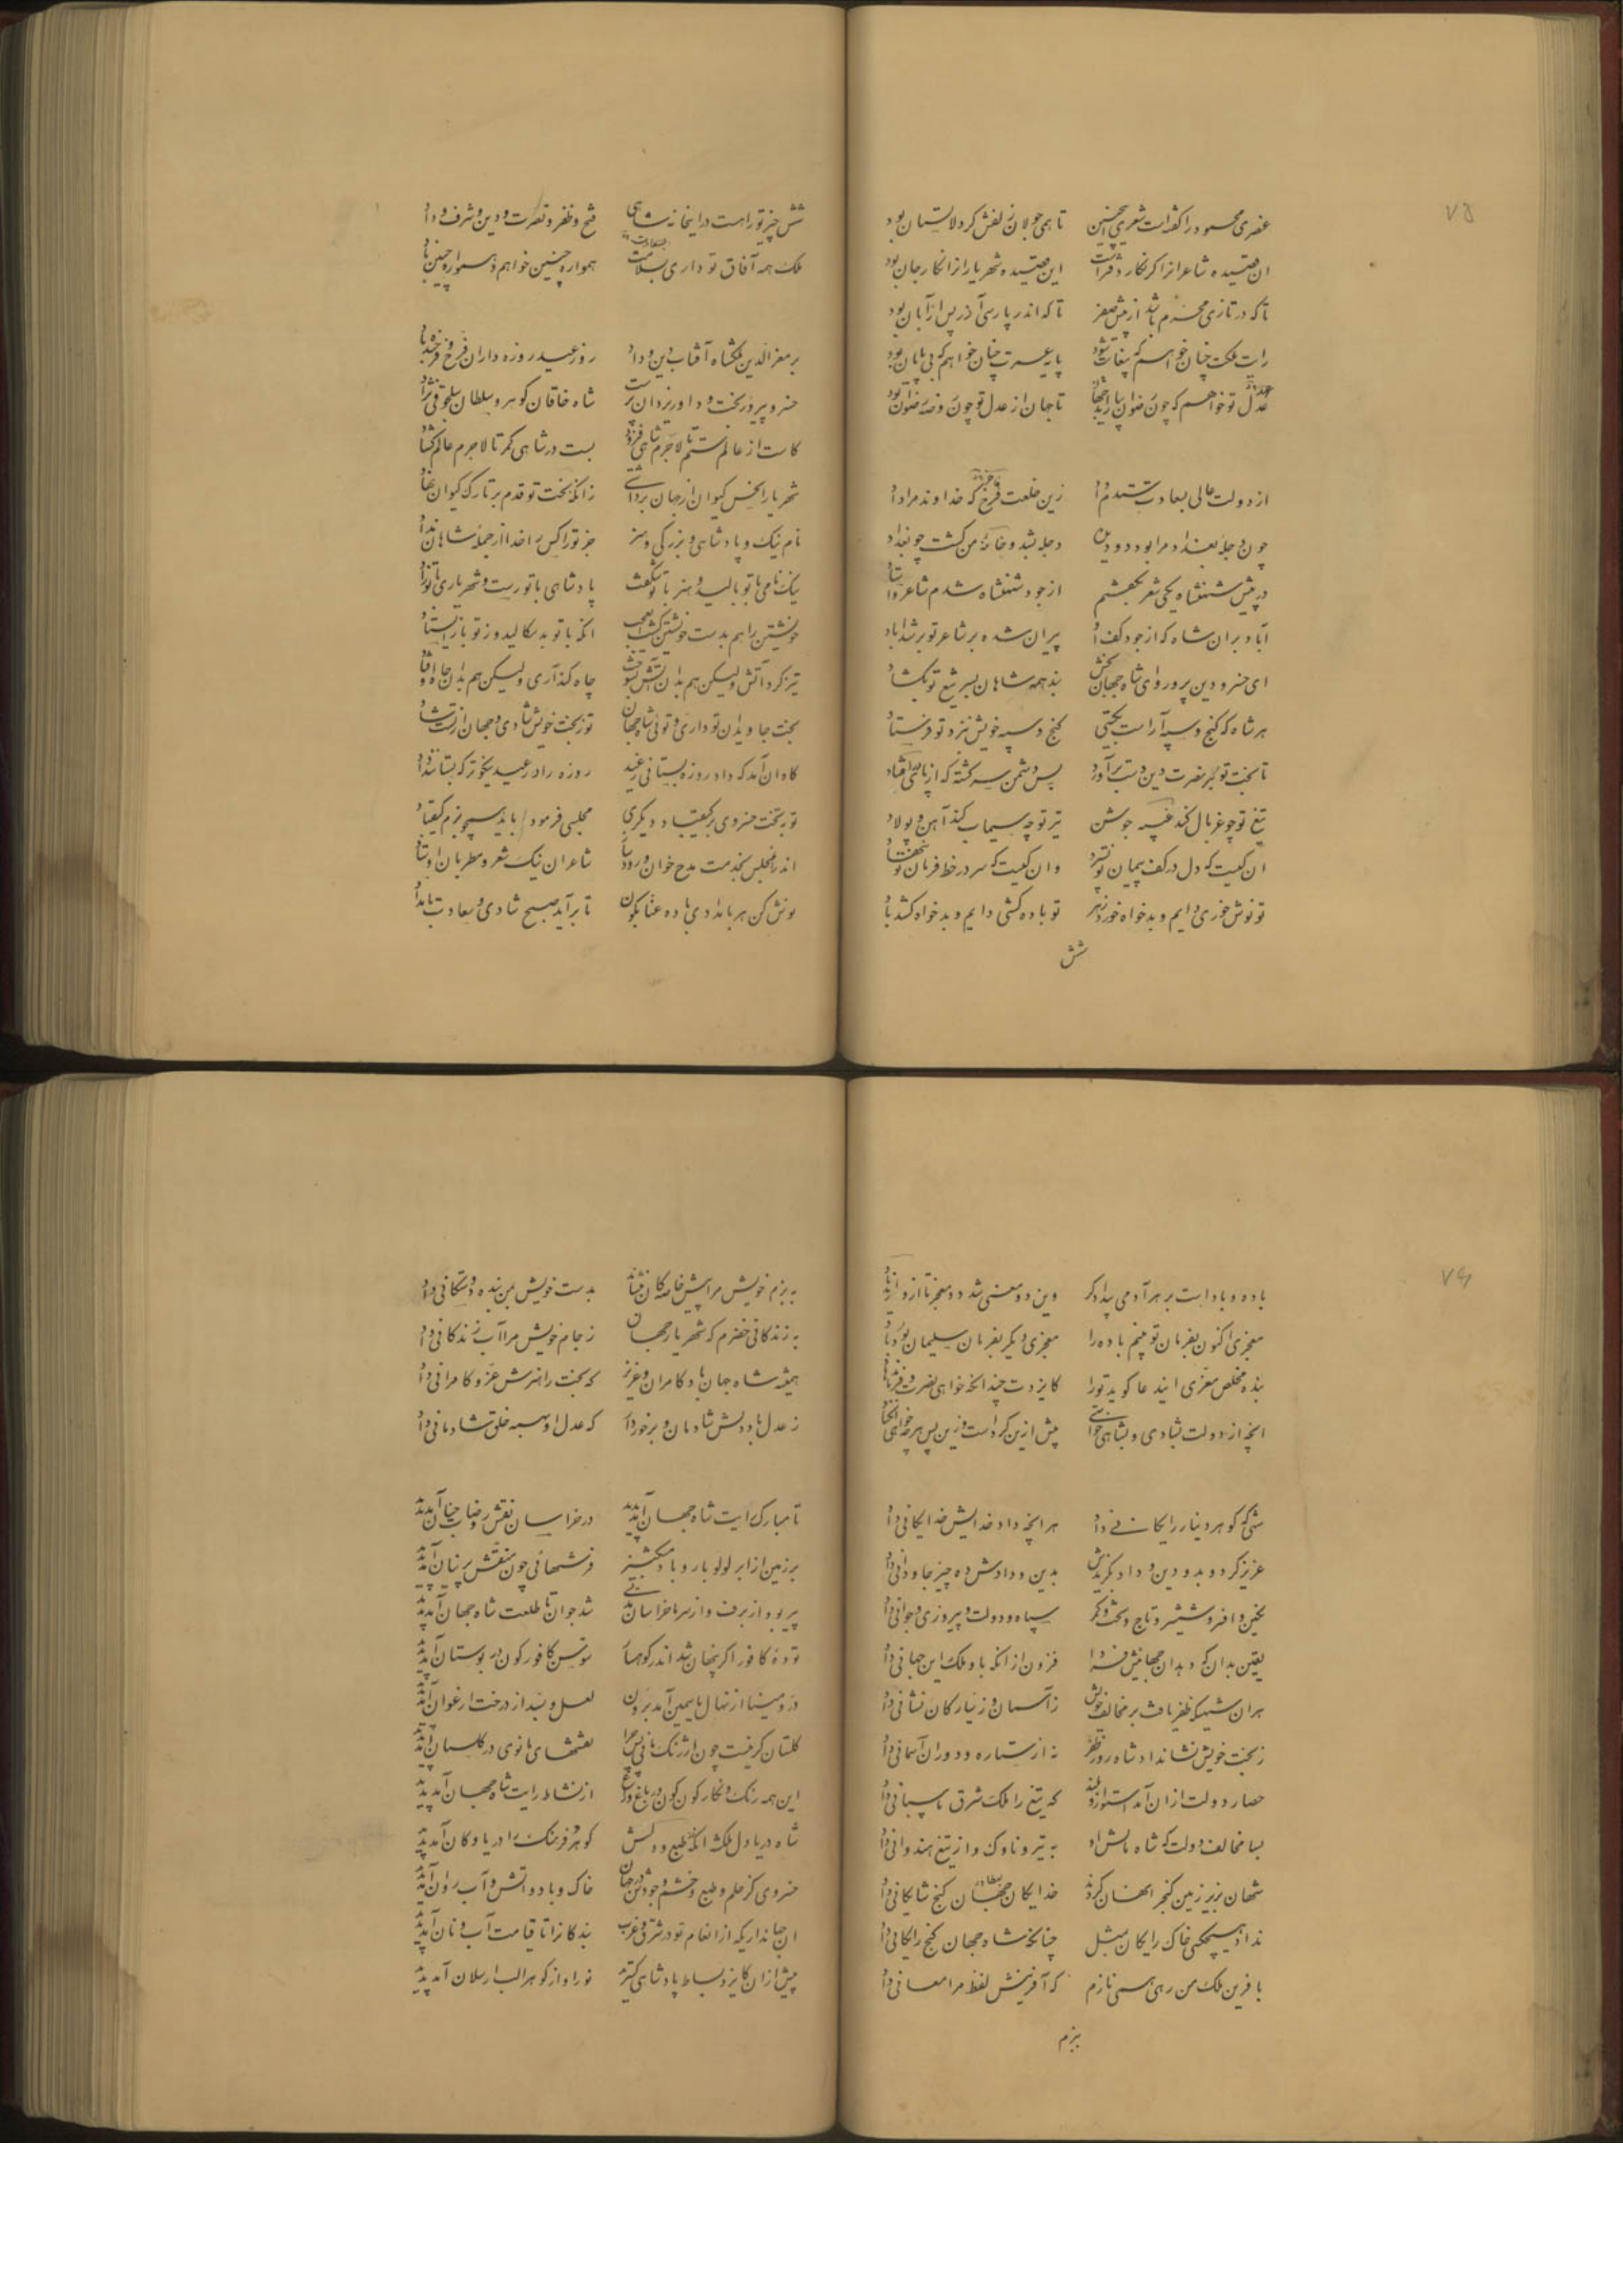 ۷۵
عنصری محمود را گفته است شعری اینچنین تا همی جولان زلفش گرد لالستان بود
ان قصیده شاعرانرا گر نگار دفترست این قصیده شهریار از انگار جان بود
تا که در تازی محرم باشد از پیش صفر تا که اندر پارسی آذر پس از آبان بود
رایت ملکت چنان خواهم که بیغایت شود پایه عمرت چنان خواهم که بی پایان بود
عدل تو خواهم که چون رضوان بیاراید جهان تا جهان از عدل تو چون روضه رضوان بود
از دولت عالی بسعادت شدم زین خلعت فرخ که خداوند مرا داد
چون دجله بغداد مرا بود دو دیده دجله بشد و خانه من گشت چو بغداد
در پیش شهنشاه یکی شعر بگفتم از جود شهنشاه شدم شاعر و استاد
آباد بران شاه که از جود کف او پیران شده بر شاعر تو بر شد آباد
ای خسرو دین پرور و ای شاه جهان بخش بند همه شاهان بسر تیغ تو بگشاد
هر شاه که گنج و سپه آراست بگیتی گنج و سپه خویش بنزد تو فرستاد
تا بخت تو بر نصرت دین دست برآورد بس دشمن سرگشته که از پای درافتاد
تیغ تو چو غربال کند غیبه جوشن تیر تو چه سیماب کند آهن و پولاد
ان کیست که دل در کف پیمان تو نسپرد وان کیست که سر در خط فرمان تو ننهاد
تو نوش خوری دایم و بدخواه خورد زهر تو باده کشی دایم و بدخواه کشد باد
شش
شش چیز تو راست در اینخانه شاهی فتح و ظفر و نصرت و دین و شرف و داد
ملک همه آفاق تو داری بسلامت همواره چنین خواهم و همواره چنین باد
بر معزالدین ملکشاه آفتاب دین و داد روز عید روزه داران فرخ و فرخنده باد
خسرو پیروزبخت و داور یزدان پرست شاه خاقان گوهر و سلطان سلجوقی نژاد
کاست از عالم ستم تا لاجرم شاهی فزود بست در شاهی کمر تا لاجرم عالم گشاد
شهریارا نحس کیوان از جهان برداشتی زانکه بخت تو قدم بر تارک کیوان نهاد
نام نیک و پادشاهی و بزرگی و هنر جز تو را کس را خدا از جمله شاهان نداد
نیک نامی با تو بالید و هنر با تو شکفت پادشاهی با تو رست و شهریاری با تو زاد
خویشتن را هم بدست خویشتن کشت ای عجب انکه با تو بد سکالید و ز تو باز ایستاد
تیز کرد آتش ولیکن هم بدان آتش بسوخت چاه کند آری ولیکن هم بدان چاه اوفتاد
بخت جاویدن تو داری و توئی شاه جهان تو ز بخت خویش شادی و جهان از تست شاد
گاه ان آمد که داد روزه بستانی ز عید روزه را در عید نیکوتر که بستانند داد
تو بتخت خسروی بر کیقباد دیگری مجلسی فرمود باید همچو بزم کیقباد
اندر انمجلس بخدمت مدح خوان و رود ساز شاعران نیک شعر و مطربان اوستاد
نوش کن هر بامدادی باده عناب گون تا برآید صبح شادی و سعادت بامداد
۷۶
باده و باد است بر هر آدمی بیدادگر وین دو معنی شد دو معجز تا از در ایزد باد
معجزی اکنون بفرمان تو بینم باده را معجزی دیگر بفرمان سلیمان بود باد
بنده مخلص معزی ایندعا گوید تو را کایزدت چندانکه خواهی نصرت و فیروزی دهاد
انچه از دولت بشادی و بشاهی خواستی پیش ازین کرد است و زین پس هر چه خواهی آن کناد
شهی که گوهر و دینار رایگانی داد هر انچه داد خدایش خدایگانی داد
عزیز کرد و بدو دین و داد بگزیدش بدین و دادش ده چیز جاودانی داد
نگین و افسر و شمشیر و تاج و تخت و کمر سپاه و دولت و پیروزی و جوانی داد
یقین بدان که بدان جهانیش فردا فزون از انکه باو ملک این جهانی داد
هران شهیکه ظفر یافت بر مخالف خویش ز آسمان و ز سیارگان نشانی داد
ز بخت خویش نشان داد شاه روز ظفر نه از ستاره و دوران آسمانی داد
حصار دولت از ان آمد استوار و بلند که تیغ را ملک شرق پاسبانی داد
بسا مخالف دولت که شاه مالش داد به تیر و ناوک و از تیغ هندوانی داد
شهان بزیر زمین گنجها نهان کردند خدایگان جهان گنج شایگانی داد
نداد هیچکس خاک رایگان بمثل چنانکه شاه جهان گنج رایگانی داد
بافرین ملک من رهی همی نازم که آفرینش لفظ مرا معانی داد
بزم
به بزم خویش مرا پیش خاصگان بنشاند بدست خویش بمن بنده دوستکانی داد
به زندگانی خضرم که شهریار جهان ز جام خویش مرا آب زندگانی داد
همیشه شاه جهان باد کامران و عزیز که بخت را هنرش عز و کامرانی داد
ز عدل باد دلش شادمان و برخوردار که عدل او بهمه خلق شادمانی داد
تا مبارک رایت شاه جهان آمد پدید در خراسان نقش روضات جنان آمد پدید
بر زمین از ابر لولو بار و باد مشکبیز فرشهائی چون منقش پرنیان آمد پدید
پیر بود از برف و از سرما خراسان مدتی شد جوان تا طلعت شاه جهان آمد پدید
توده کافور اگر پنهان شد اندر کوهسار سوسن کافورگون در بوستان آمد پدید
در و مینا از نهال یاسمین آمد برون لعل و بسد از درخت ارغوان آمد پدید
گلستان گر نیست چون ارژنگ مانی پس چرا نقشهای مانوی در گلستان آمد پدید
این همه رنگ و نگار گون گون در باغ و راغ از نشاط رایت شاه جهان آمد پدید
شاه دریا دل ملکشه انکه از طبع و دلش گوهر فرهنگ را دریا و کان آمد پدید
خسروی کز حلم و طبع و خشم و جودش در جهان خاک و باد و آتش و آب روان آمد پدید
ان جهانداریکه از انعام تو در شرق و غرب بندگانرا تا قیامت آب و نان آمد پدید
پیش از ان کایزد بساط پادشاهی گسترد نور او از گوهر الب ارسلان آمد پدید